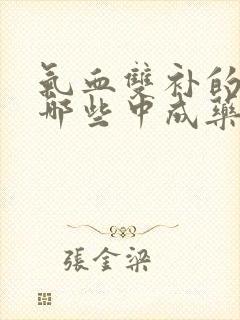 氣血雙补的
哪些中成藥
張金梁